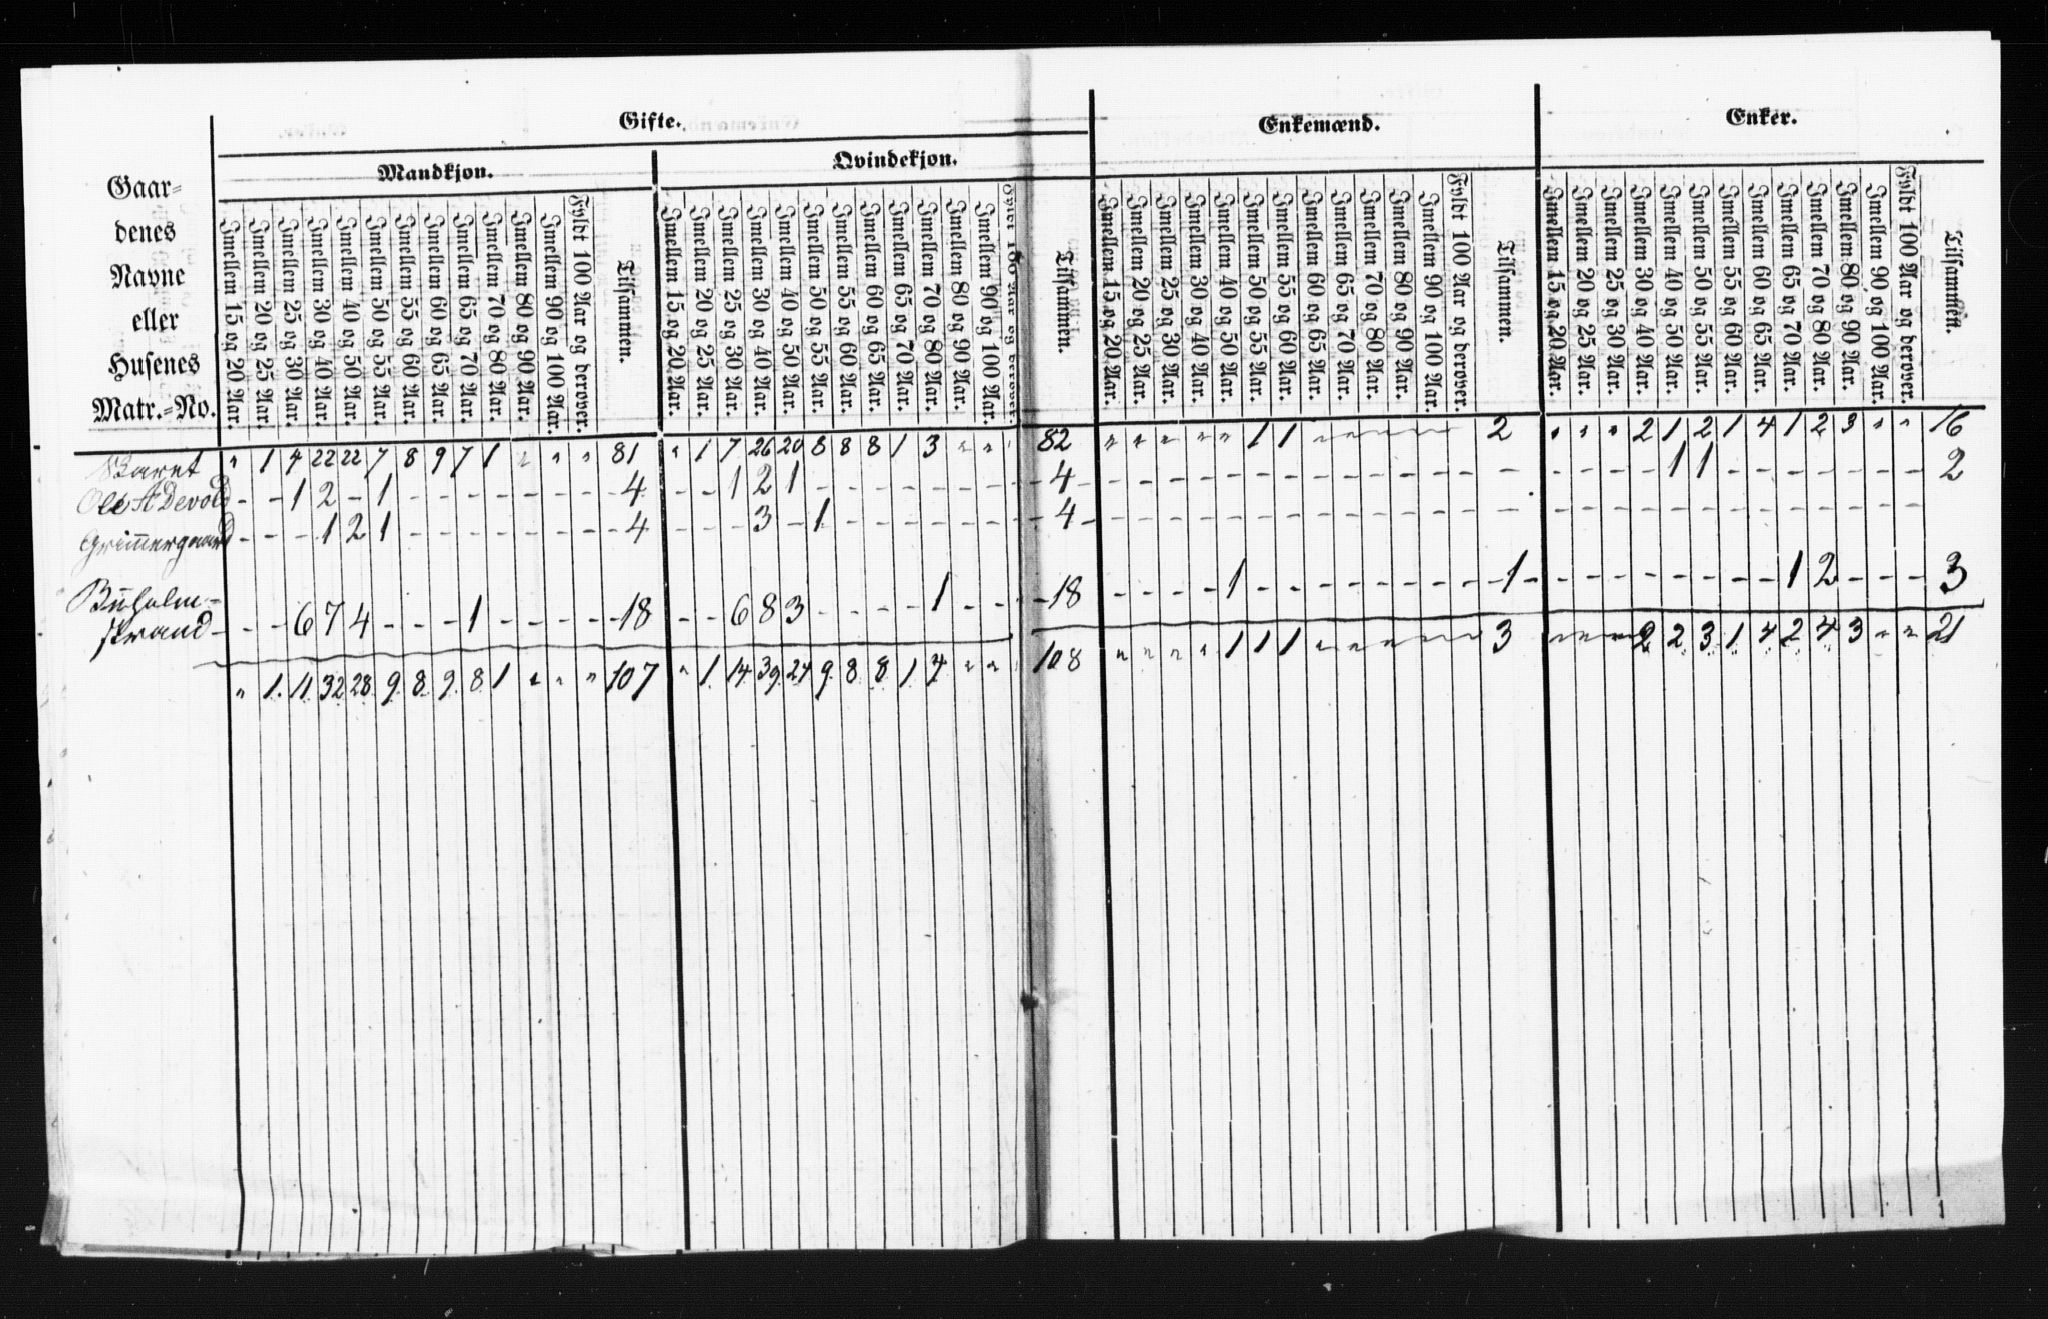 Gifte.
Enkemænd.
Enker.
Mandkjøn.
Qvindekjøn.
Gaar-
denes
Navne
eller
Husenes
Matr.-No.
Imellem 15 og 20 Aar.
Imellem 20 og 25 Aar.
Imellem 25 og 30 Aar.
Imellem 30 og 40 Aar.
Imellem 40 og 50 Aar.
Imellem 50 og 55 Aar.
Imellem 55 og 60 Aar.
Imellem 60 og 65 Aar.
Imellem 65 og 70 Aar.
Imellem 70 og 80 Aar.
Imellem 80 og 90 Aar.
Imellem 90 og 100 Aar.
Fyldt 100 Aar og derover.
Tilsammen.
Imellem 15 og 20 Aar.
Imellem 20 og 25 Aar.
Imellem 25 og 30 Aar.
Imellem 30 og 40 Aar.
Imellem 40 og 50 Aar.
Imellem 50 og 55 Aar.
Imellem 55 og 60 Aar.
Imellem 60 og 65 Aar.
Imellem 65 og 70 Aar.
Imellem 70 og 80 Aar.
Imellem 80 og 90 Aar.
Imellem 90 og 100 Aar.
Fyldt 100 Aar og derover.
Tilsammen.
Imellem 15 og 20 Aar.
Imellem 20 og 25 Aar.
Imellem 25 og 30 Aar.
Imellem 30 og 40 Aar.
Imellem 40 og 50 Aar.
Imellem 50 og 55 Aar.
Imellem 55 og 60 Aar.
Imellem 60 og 65 Aar.
Imellem 65 og 70 Aar.
Imellem 70 og 80 Aar.
Imellem 80 og 90 Aar.
Imellem 90 og 100 Aar.
Fyldt 100 Aar og derover.
Tilsammen.
Imellem 15 og 20 Aar.
Imellem 20 og 25 Aar.
Imellem 25 og 30 Aar.
Imellem 30 og 40 Aar.
Imellem 40 og 50 Aar.
Imellem 50 og 55 Aar.
Imellem 55 og 60 Aar.
Imellem 60 og 65 Aar.
Imellem 65 og 70 Aar.
Imellem 70 og 80 Aar.
Imellem 80 og 90 Aar.
Imellem 90 og 100 Aar.
Fyldt 100 Aar og derover.
Tilsammen.
Skaret " 1 4 22 22 7 8 9 7 1 " " " 81 " 1 7 26 20 8 8 8 1 3 " " " 82 " " " " " 1 1 " " " " " 2 " " " 2 1 2 1 4 1 2 3 " " 16
Ole A Devold - - 1 2 - 1 - - - - - - - 4 - - 1 2 1 - - - - - - - - 4 - - - - - - - - - - - - - - - - - - 1 1 - - - - - - - 2
Grimmergaard - - - 1 2 1 - - - - - - - 4 - - - 3 - 1 - - - - - - - 4 - - - - - - - - - - - - - - - - - - - - - - - - - - -
Buholm-
strand - - 6 7 4 - - - 1 - - - - 18 - - 6 8 3 - - - - 1 - - - 18 - - - - 1 - - - - - - - - 1 - - - - - - - - 1 2 - - - 3
" 1 11 32 28 9 8 9 8 1 " " " 107 " 1 14 39 24 9 8 8 1 4 " " " 108 " " " " 1 1 1 " " " " " 3 " " " 2 2 3 1 4 2 4 3 " " 21